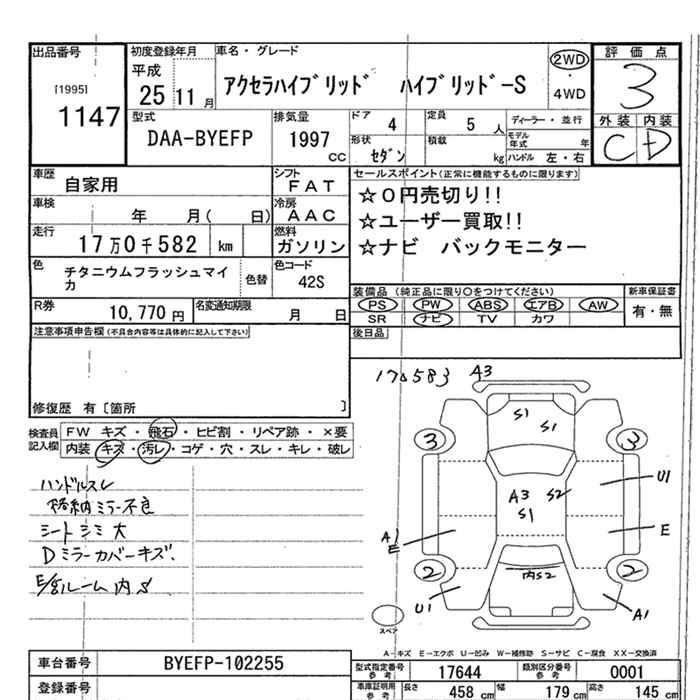 出品番号 初度登録年月 車名・グレード 評価点
[1995] 平成 アクセラハイブリッド ハイブリッド-S 2WD 3
1147 25 11月 ・4WD
型式 排気量 ドア 4 定員 5人 ディーラー・並行 外装 内装
DAA-BYEFP 1997 CC 形状 セダン 積載 kg モデル年式 年 C D
ハンドル 左・右
車歴 自家用 シフト FAT セールスポイント(正常に機能するものに限ります)
車検 年 月( 日) 冷房 AAC ☆0円売切り!!
☆ユーザー買取!!
走行 17万0千582 km 燃料 ガソリン ☆ナビ バックモニター
色 チタニウムフラッシュマイカ 色替 色コード 42S
装備品(純正品に限り○をつけてください) 新車保証書
R券 10,770円 名変通知期限 月 日 PS PW ABS エアB AW 有・無
SR ナビ TV カワ
注意事項申告欄(不具合内容等は具体的に記入して下さい) 後日品
修復歴 有〔箇所 〕
170583 A3
検査員記入欄 FW キズ・飛石・ヒビ割・リペア跡・×要
内装 キズ・汚レ・コゲ・穴・スレ・キレ・破レ
ハンドルスレ
格納ミラー不良
シートシミ大
Dミラーカバーキズ.
E/gルーム内S
S1 S1
3 3
A3 S2 U1
S1
A1 E E
2 内S2 2
U1 A1
スペア
A-キズ E-エクボ U-凹み W-補修跡 S-サビ C-腐食 XX-交換済
車台番号 BYEFP-102255 型式指定番号 参考 17644 類別区分番号 参考 0001
登録番号 車庫証明用 参考 長さ 458 cm 幅 179 cm 高さ 145 cm